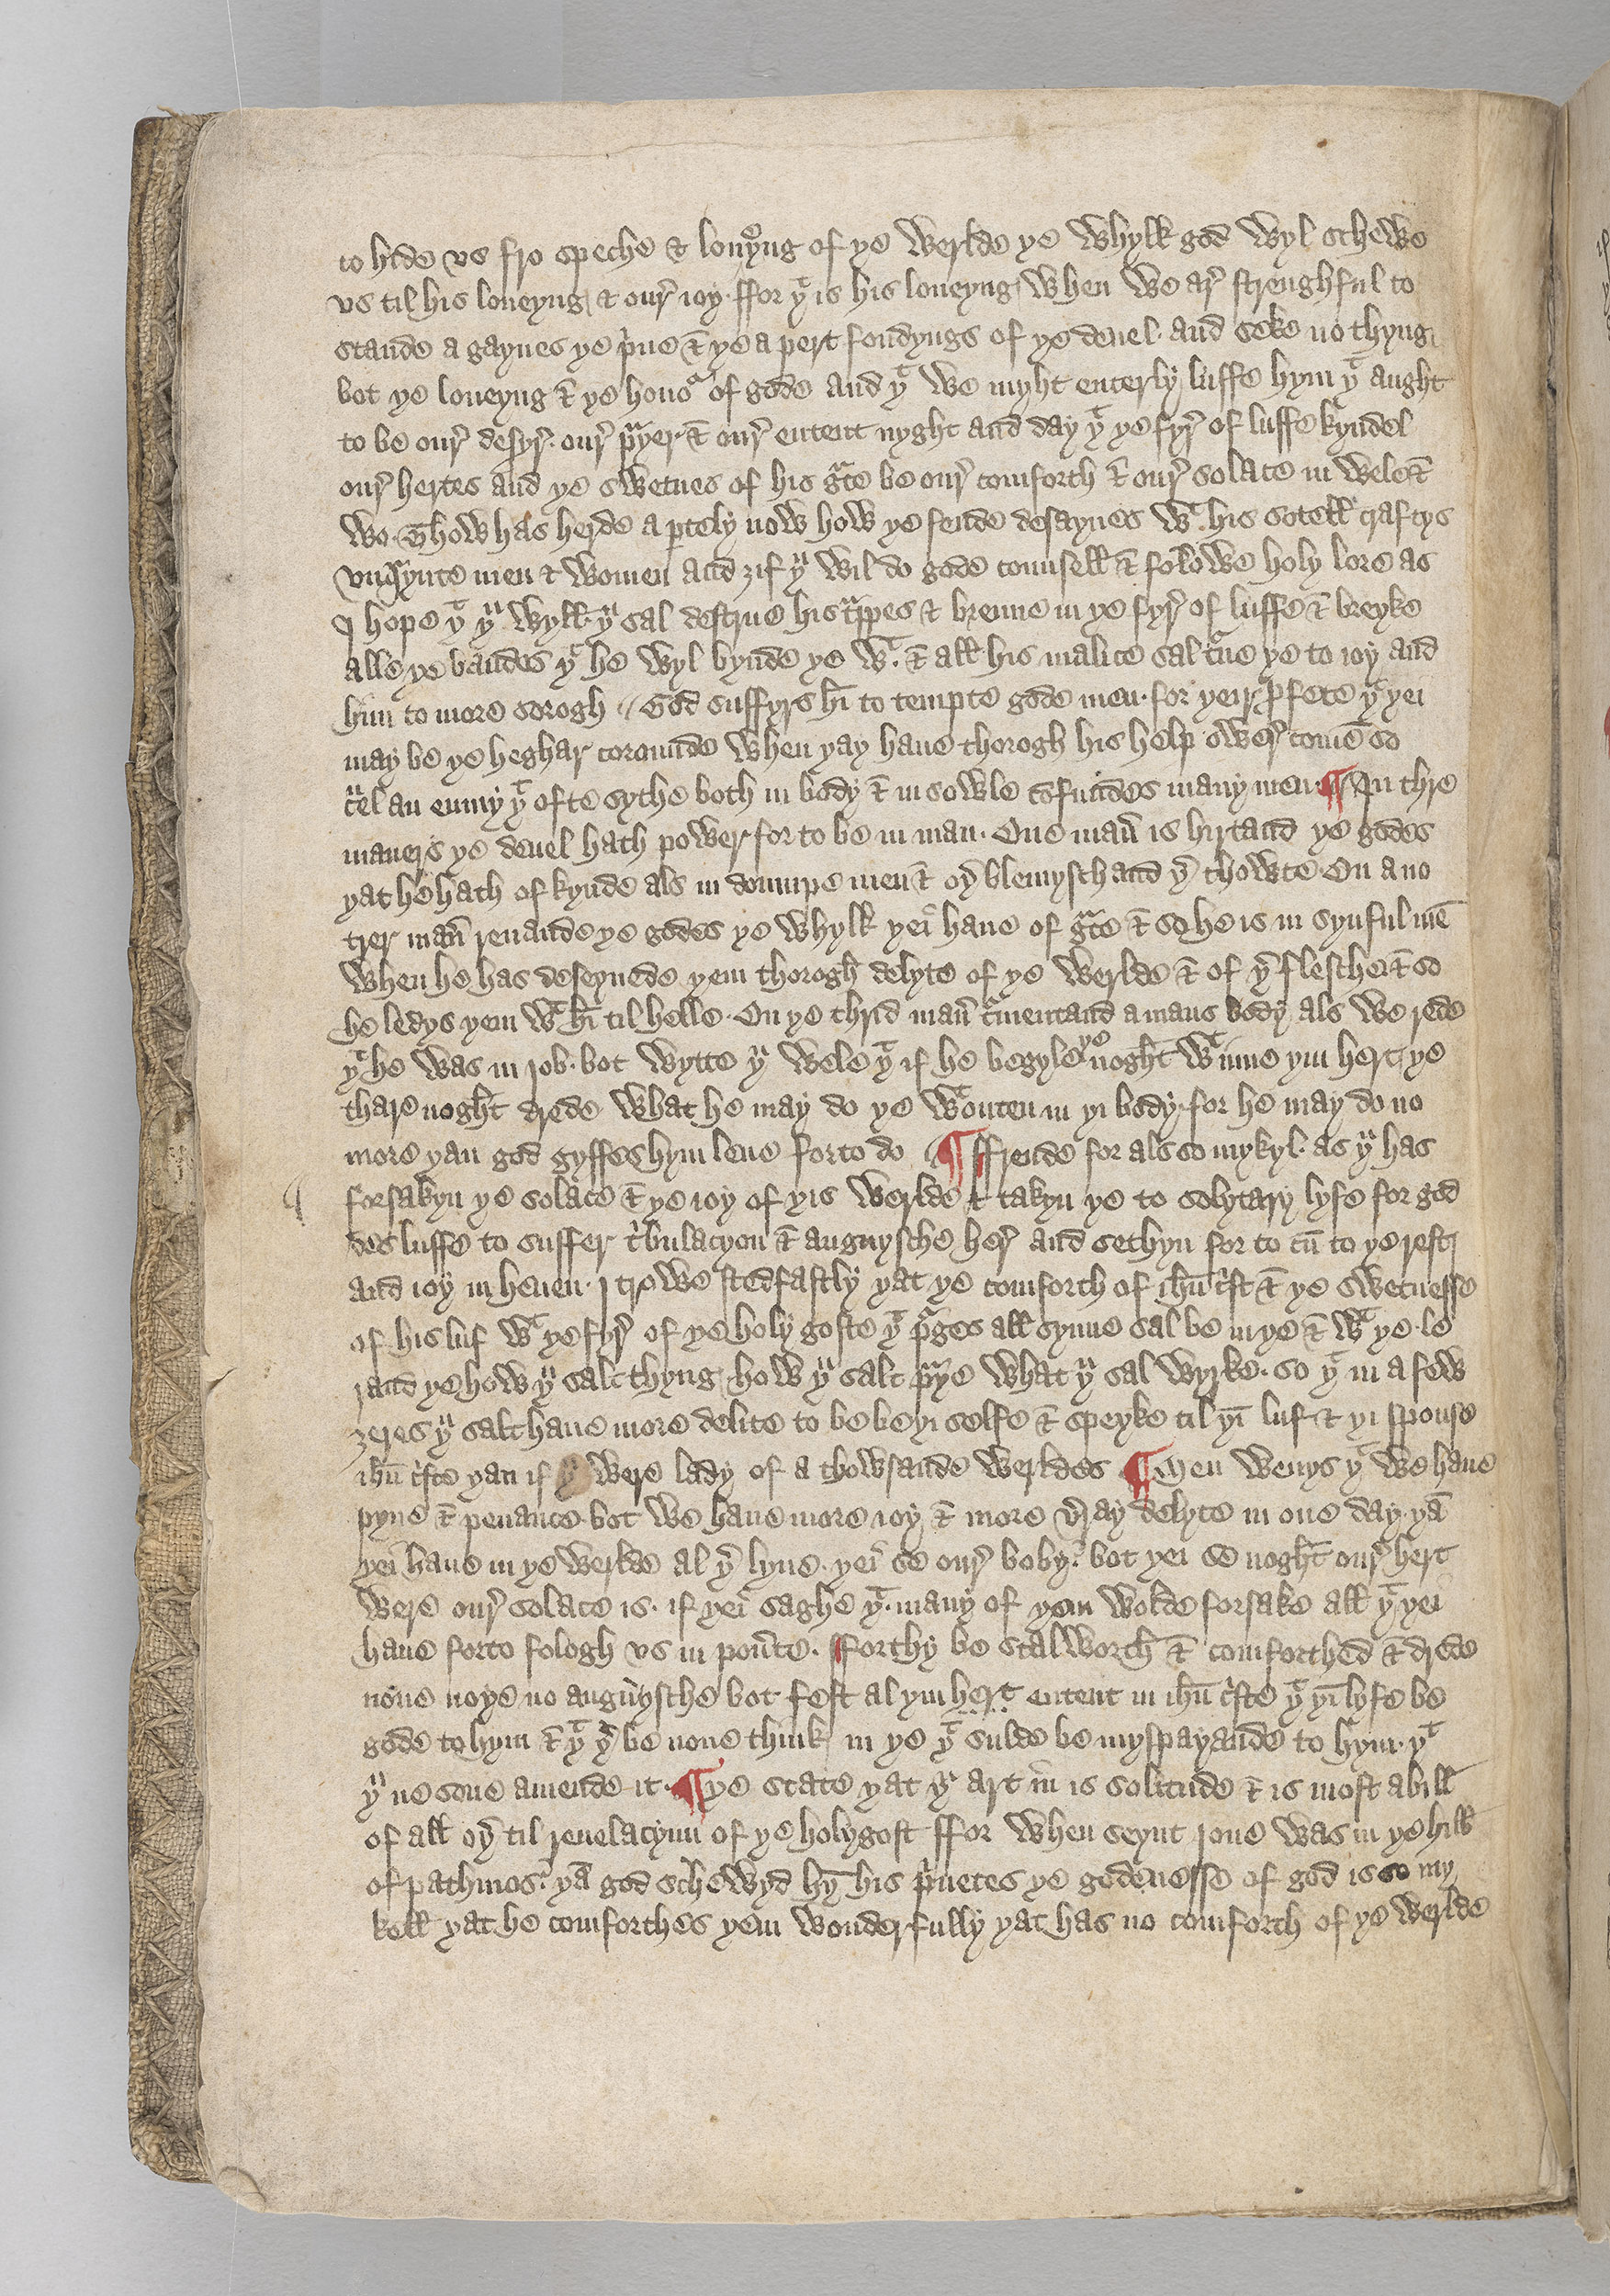 to hide vs fro speche & louyͦyng of ye werlde ye whylk god wyl schewe
vs til his loueyng & our̛ ioy · ffor yͭ is his loueyng when we ar̛ strenghful to
stande a gaynes ye p̛ue & ye apert fondyngs of ye deuel · and seke no thyng
bot ye loueyng & ye honoͬ of gode and yͭ we myht enterly luffe hym yͭ aught
to be our̛ desyr̛ · our̛ pͣyer · & our̛ entent nyght and day yͭ ye fyr̛ of luffe kyndel
our̛ hertes and ye swetnes of his gͣce be our̛ comforth & our̛ solace in wele &
wo · Thow has herde apertely now how ye fende desaynes wͭ his sotell craftys
vnqͣynte men & women and ȝif yͧ wil do gode counsell & folowe holy lore as
I hope yͭ yͧ wyll · yͧ sal destrue his tͣppes & brenne in ye fyr̛ of luffe & breyke
alle ye bandes yͭ he wyl bynde ye wͭ · & all his malice sal tͧne ye to ioy and
him to more sorogh // God suffyrs hī to tempte gode men · for yeir p̱fete yͭ yei
may be ye heghar corounde when yay haue thorogh his help ower̛ comē so
cͬuel an enmy yͭ ofte sythe both in body & in sowle cōfundes many men · ¶ In thre
maners ye deuel hath power for to be in man · One man̛ is hirtand ye godes
yat he hath of kynde als in doumpe men & oy̛ blemyschand y̛ thowte · On ano
trer man̛ reuande ye godes ye whylk yei haue of gͣce & so he is in synful mē
when he has deseynede yem thorogh delyte of ye werlde & of y̛ flesche & so
he ledys yem wͭ hī til helle · On ye thrid man̛ t̛mentand a mans body als we rede
yͭ he was in Iob · bot wytte yͧ wele yͭ if he begyle yͤ noght wͭ inne yin hert ye
thare noght drede what he may do ye wͭ outen in yi body · for he may do no
more yan god gyffes hym leue forto do ¶ ffrende for als so mykyl · as yͧ has
forsakyn ye solace & ye ioy of yis werlde & takyn ye to solytary lyfe for god
des luffe to suffer t̛bulacyon & anguysche her̛ and sethyn for to cū to ye rest
and ioy in heuen · I trowe stedfastly yat ye comforth of ihū c̛st & ye swetnesse
of his luf wͭ ye fyr̛ of ye holy goste yͭ pͧges all synne sal be in ye & wͭ ye · le
rand ye how yͧ salt thyng how yͧ salt pͣye what yͧ sal wyrke · so yͭ in a few
ȝeres yͧ salt haue more delite to be be yi selfe & speyke til yī luf & yi spouse
ihū c̛ste yan if yͧ were lady of a thowsande werldes ¶ Men wenys yͭ we haue
pyne & penance · bot we haue more ioy & more v̛ray delyte in one day · yā
yei haue in ye werlde al y̛ lyue · yei se our̛ boby · bot yei se noght our̛ hert
were our̛ solace is · if yei saghe yͭ · many of yem wolde forsake all yͭ yei
haue forto fologh vs in pouͬte · fforthy be stalworth & comforthed & drede
none noye no anguysche bot fest al yin hert entent in ihū c̛ste yͭ yī lyfe be
gode to hym & yͭ y̛ be none think in ye yͭ sulde be myspayande to hym · yͭ
yͧ ne sone amende it · ¶ ye state yat yͧ art in is solitude & is most abill
of all oy̛ til reuelacyun of ye holygost ffor when seynt Ione was in ye hill
of pathmos · yā god schewyd hȳ his p̛uetes ye godenesse of god is so my
kell yat he comforthes yem wonderfully yat has no comforth of ye werlde